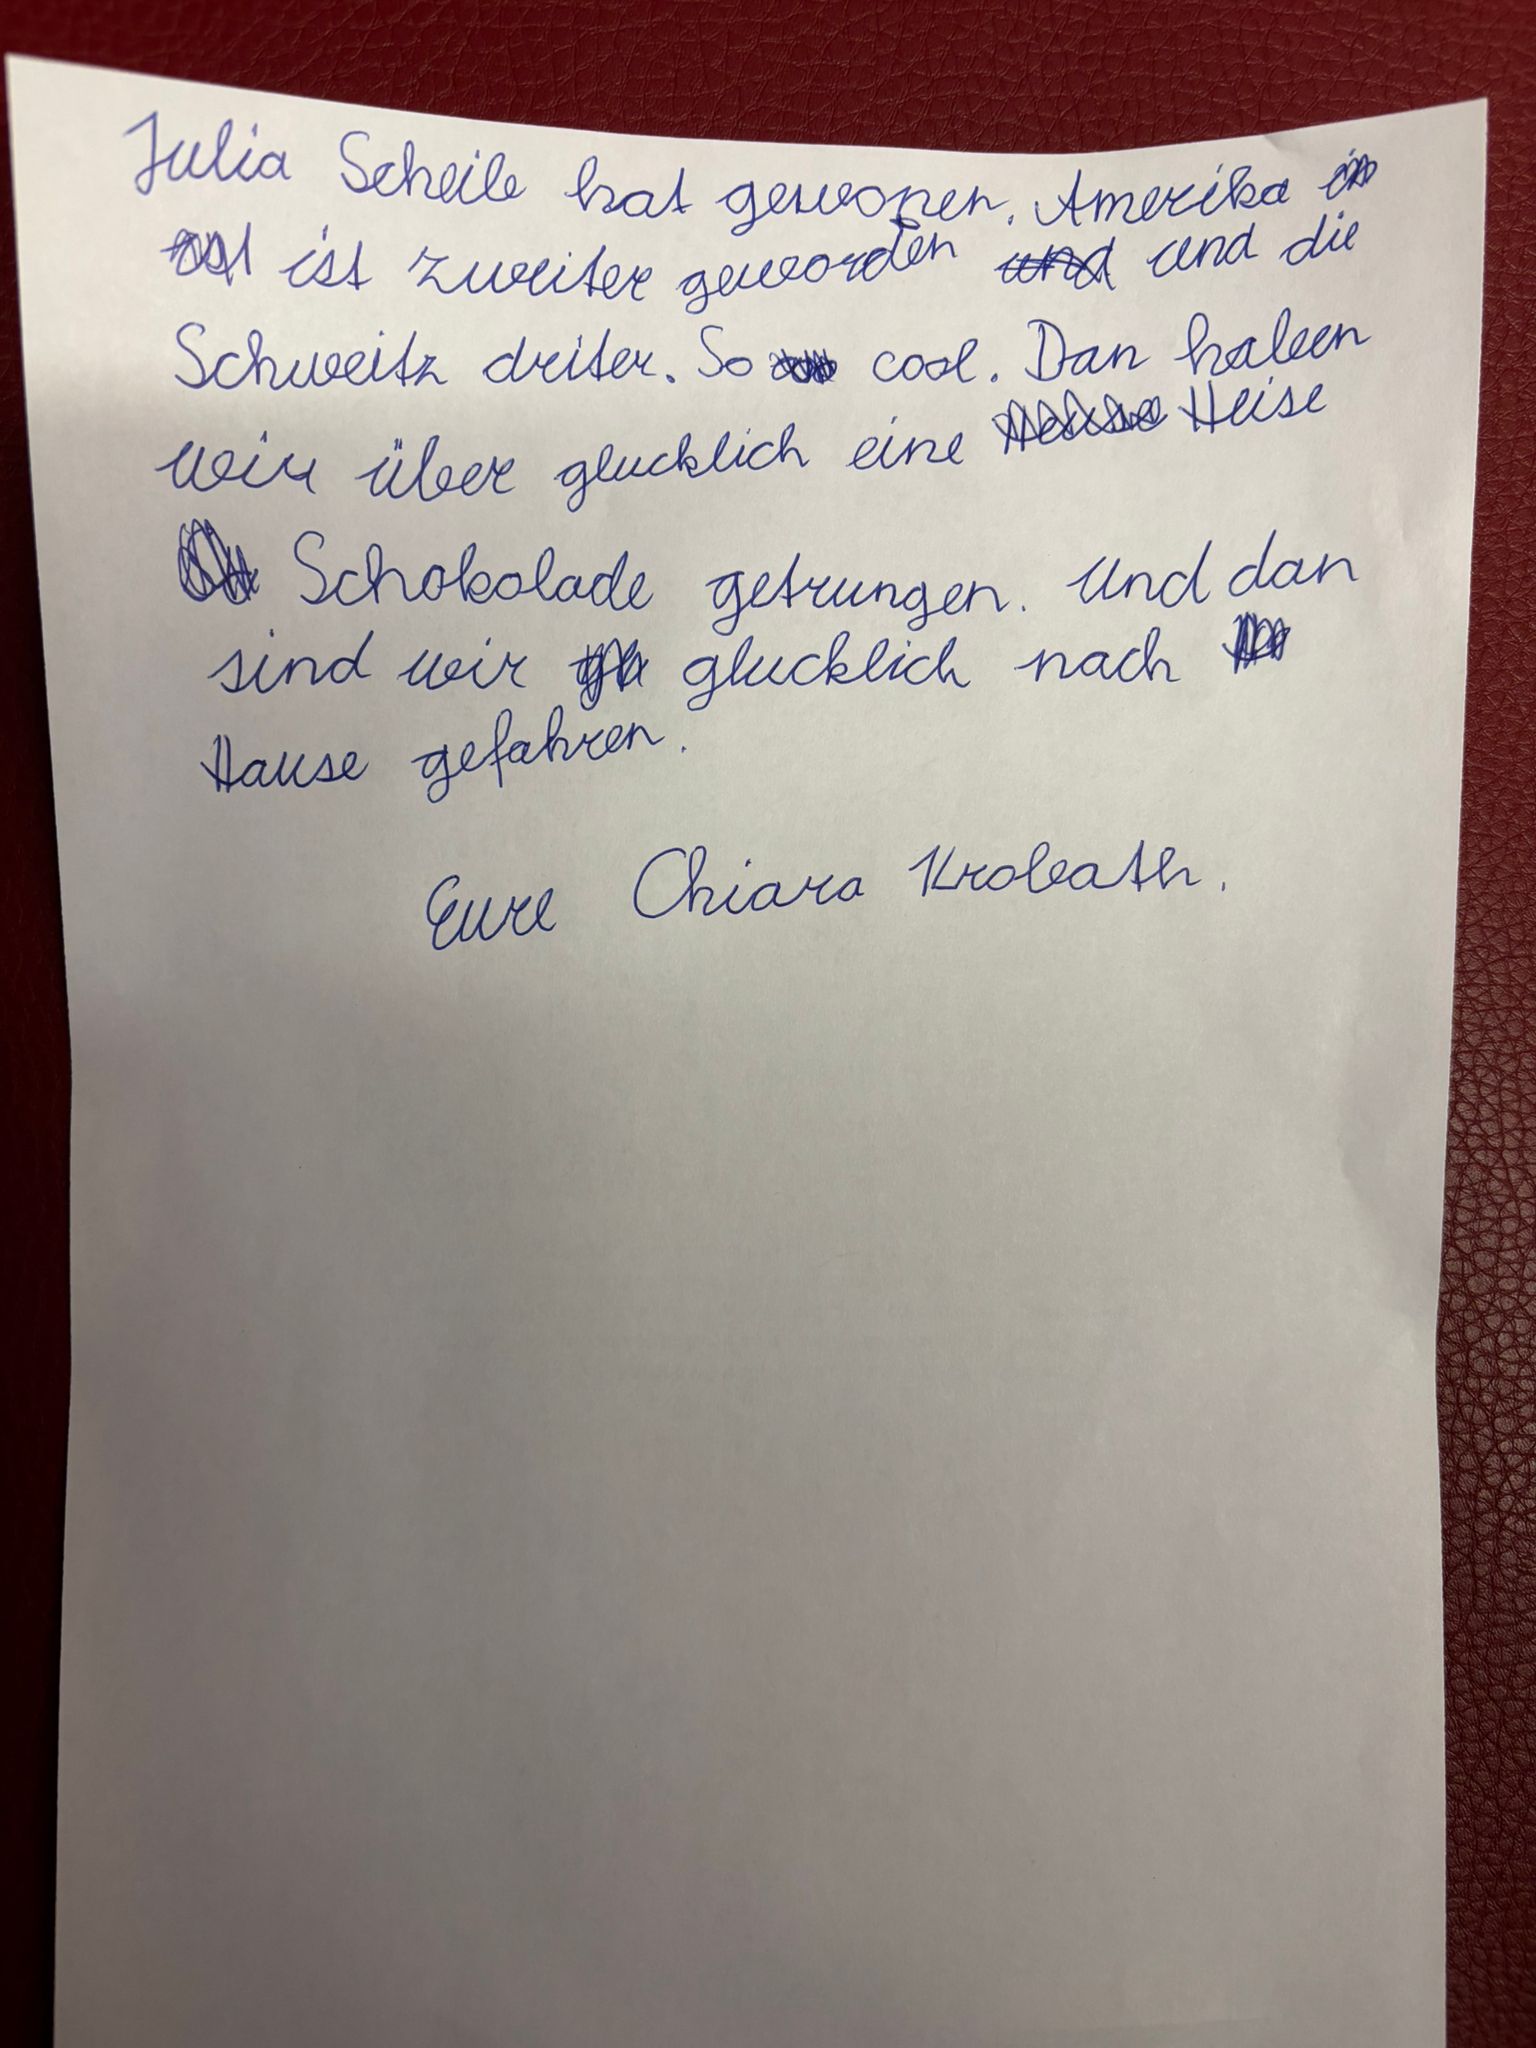 Julia Scheib hat gewonen. Amerika
ist zweiter geworden und und die
Schweitz driter. So cool. Dan haben
wir über glucklich eine Heise
Schokolade getrungen. Und dan
sind wir glucklich nach
Hause gefahren.
Eure Chiara Krobath.